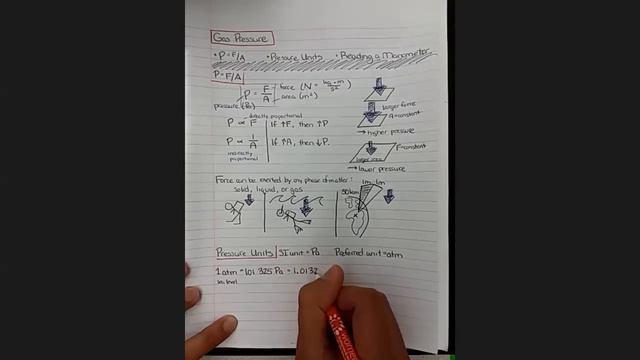 Gas Pressure
• P = F/A • Pressure Units • Reading a Manometer
P = F/A
P = F/A force (N = kg • m / s²)
area (m²)
pressure (Pa)
directly proportional
P ∝ F If ↑F, then ↑P
P ∝ 1/A If ↑A, then ↓P.
indirectly proportional
larger force
A = constant
→ higher pressure
F = constant
larger area
→ lower pressure
Force can be exerted by any phase of matter:
solid, liquid, or gas
1m 1m
50km
x
Pressure Units SI unit = Pa Preferred unit = atm
1 atm = 101 325 Pa = 1.0132
sea level